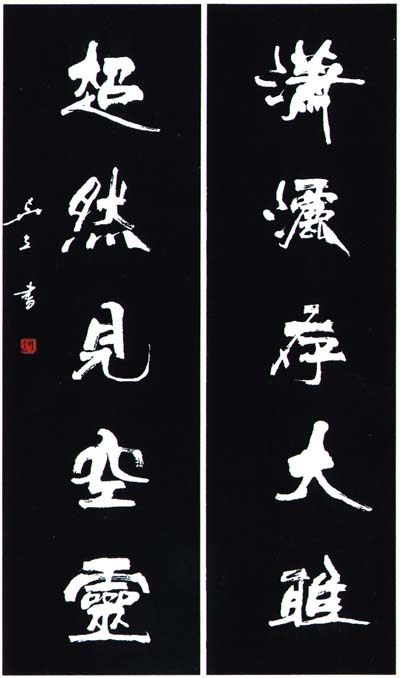 瀟灑存大雅
超然見空靈
書